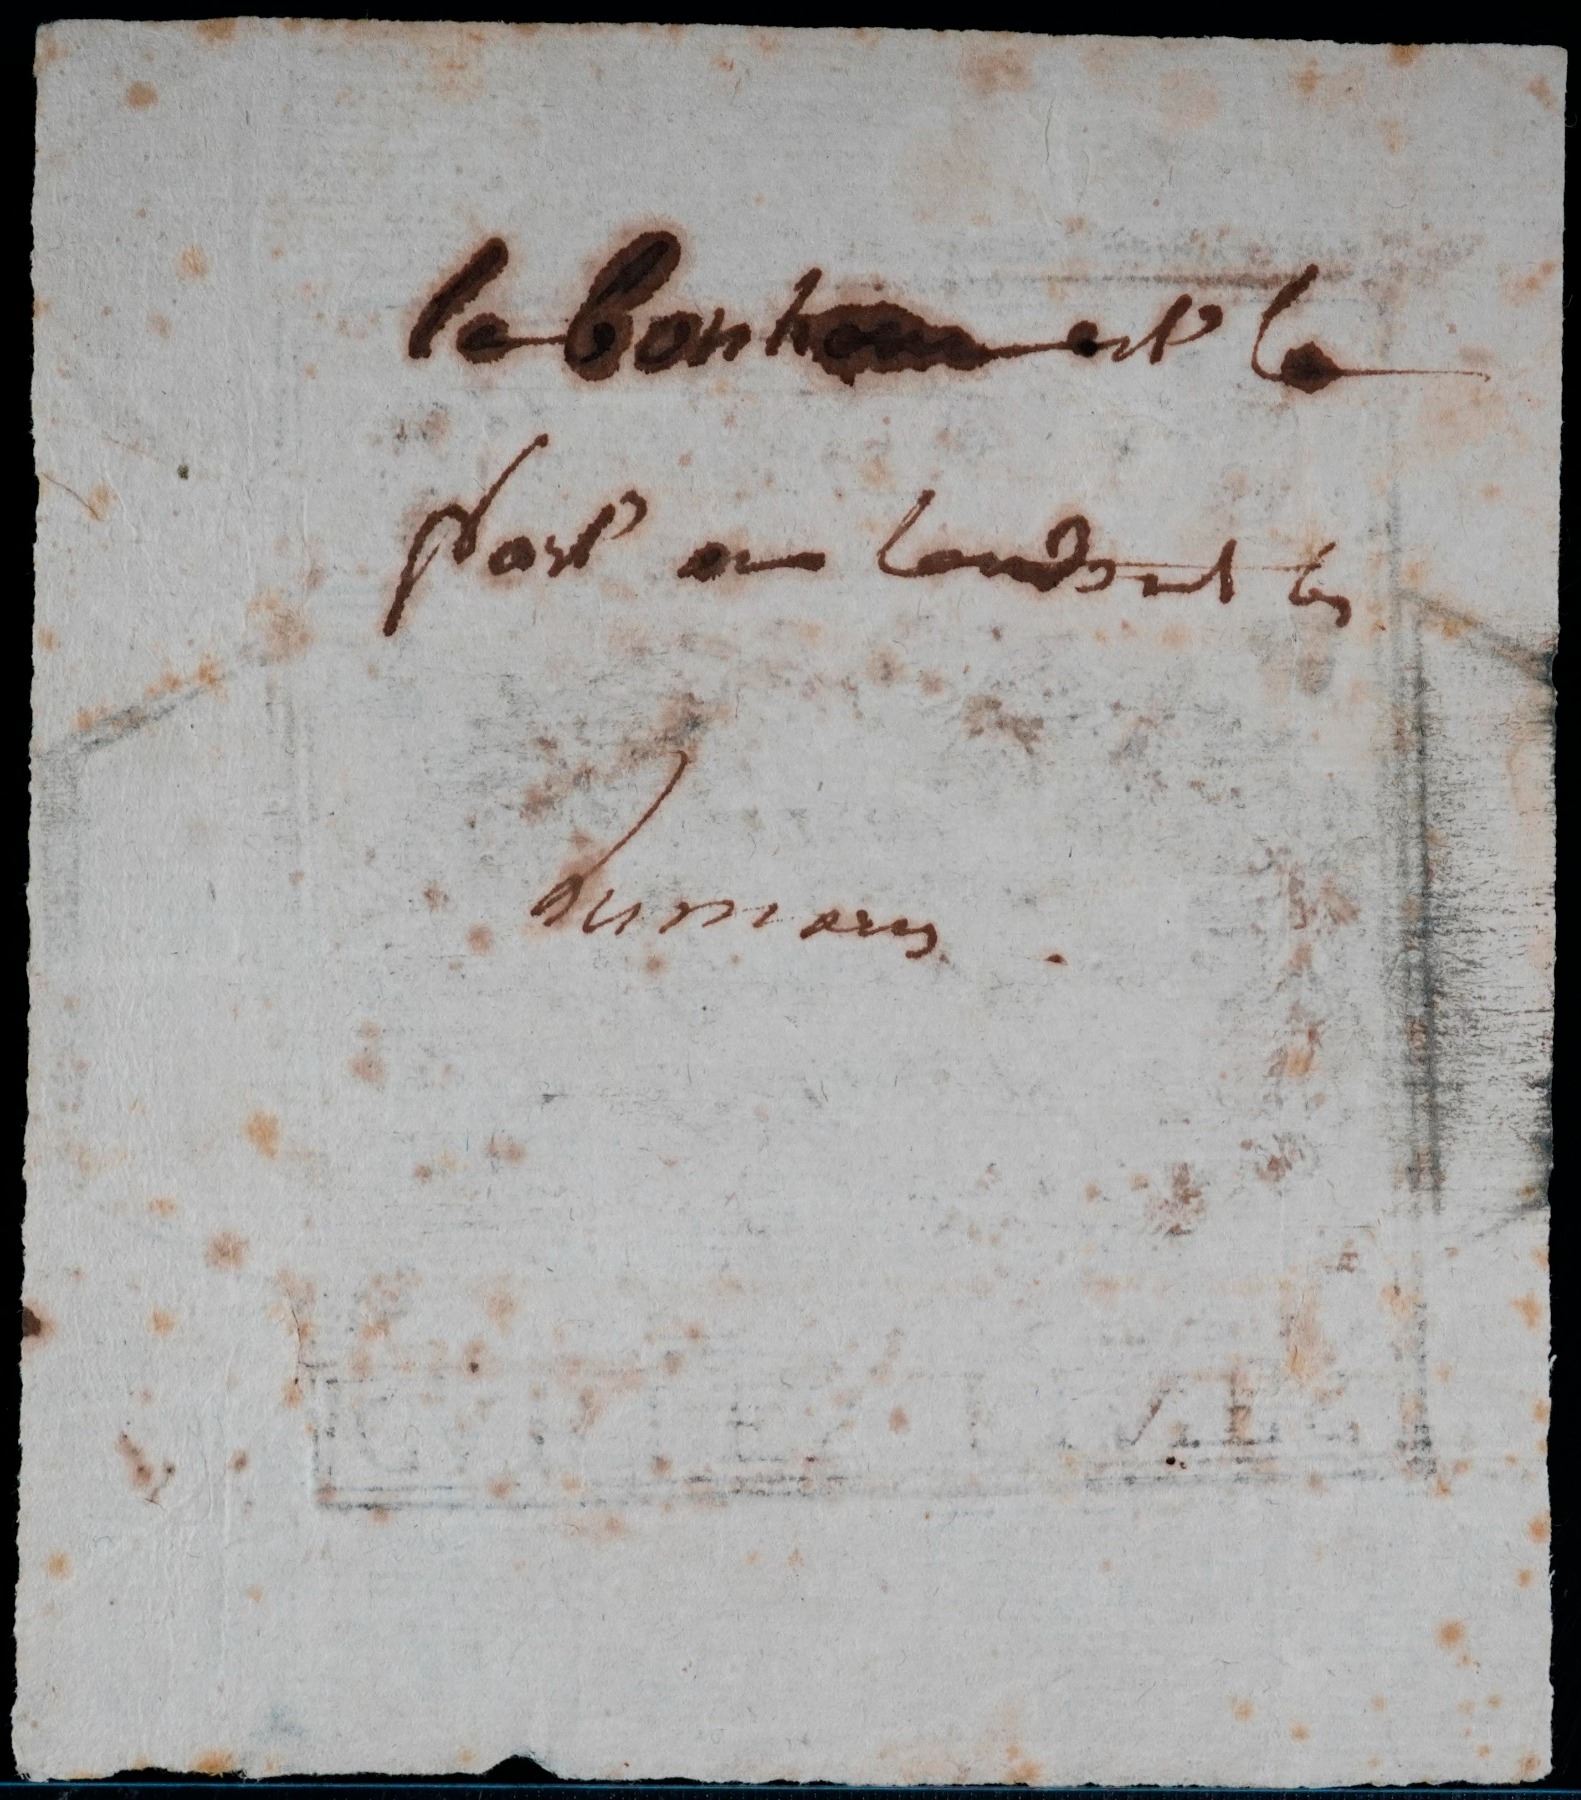 le bonheur est le
port ou tendent les
humains